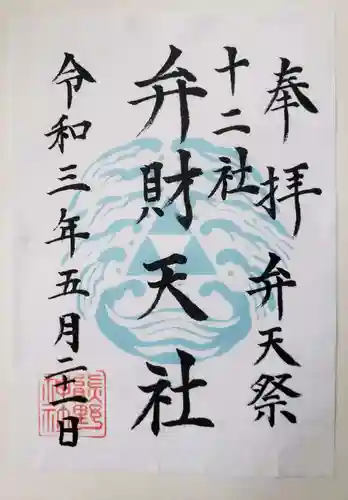 奉拝 弁天祭
十二社
弁財天社
令和三年五月二十一日
熊野
神社